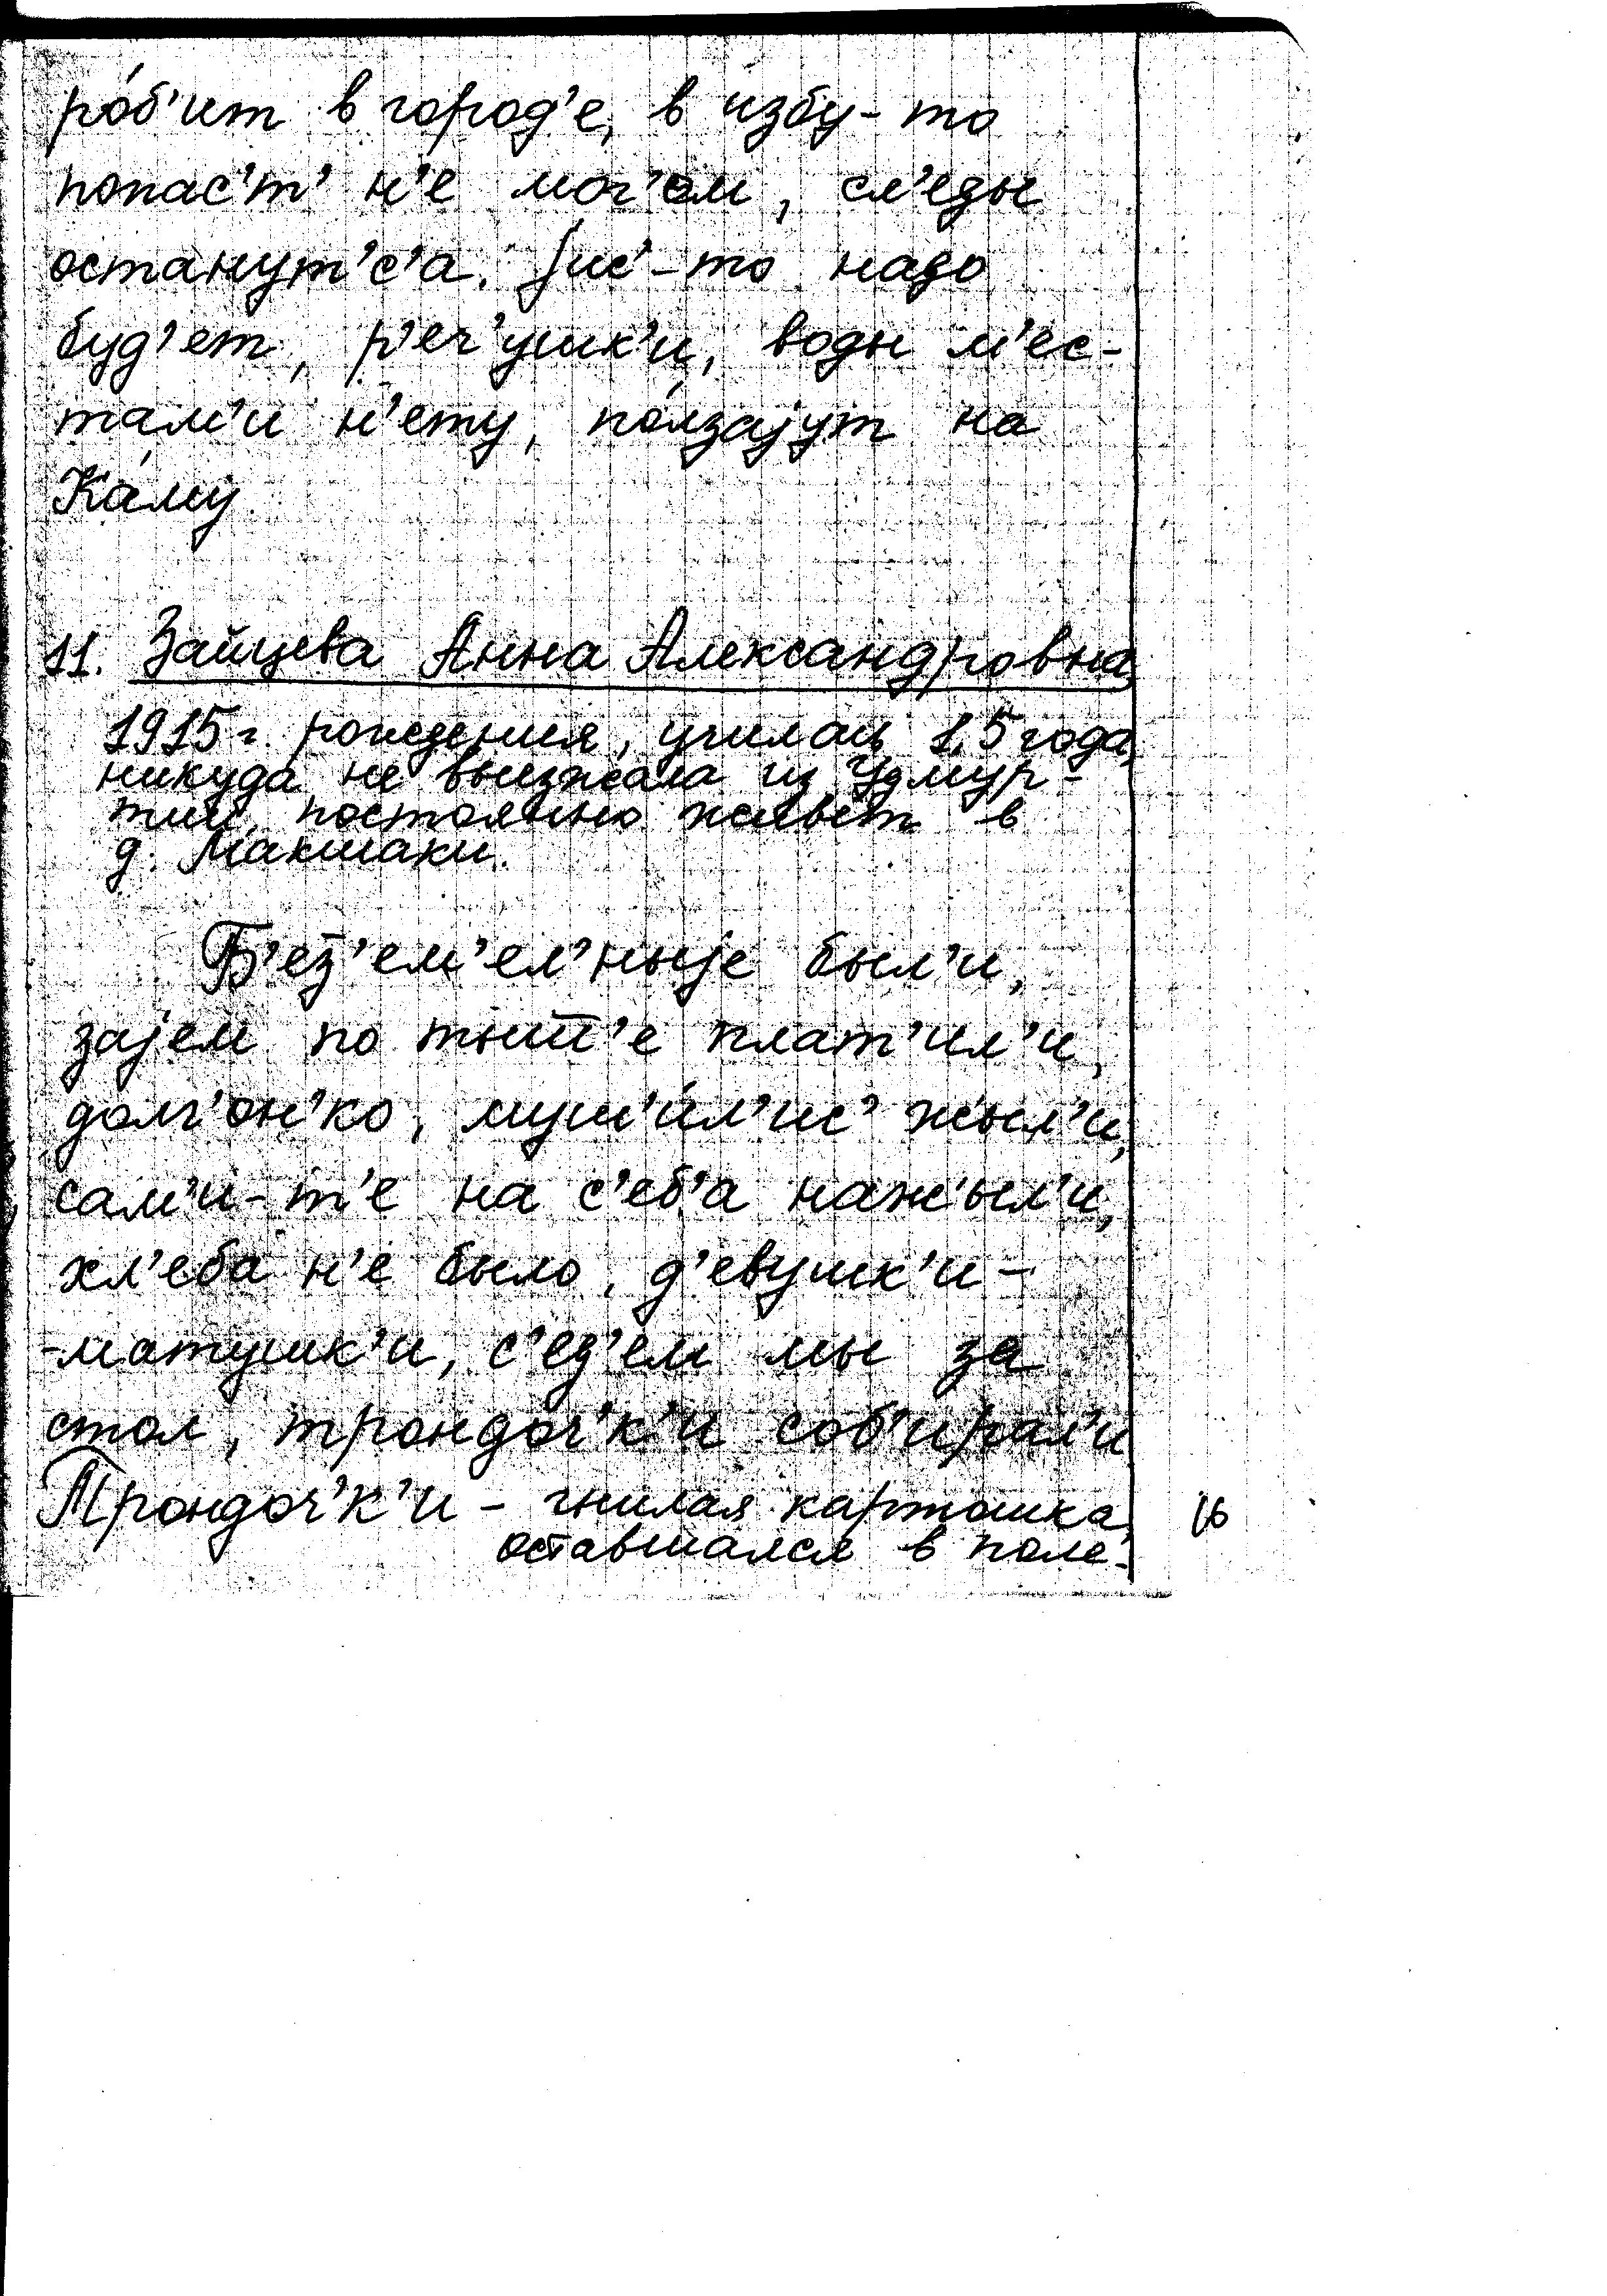 ро́б'ит в город'е, в избу-то
попас'т' н'е мог'ом, сл'еды
останут'с'а. Јис'-то надо
буд'ет, р'еч'ушк'и, воды м'ес-
там'и н'ету, по́лзајут на
Ка́му.
11. Зайцева Анна Александровна,
1915 г. рождения, училась 1,5 года,
никуда не выезжала из Удмур-
тии, постоянно живёт в
д. Макшаки.
Б'ез'ем'ел'ныје был'и,
зајем по тыщ'е плат'ил'и,
долг'он'ко, муч'ил'ис' жыл'и,
сам'и-т'е на с'еб'а нажыл'и,
хл'еба н'е было, д'евушк'и-
-матушк'и, с'ед'ем мы за
стол, трондоч'к'и соб'ирал'и
Трондоч'к'и - гнилая картошка,
оставшаяся в поле.
16